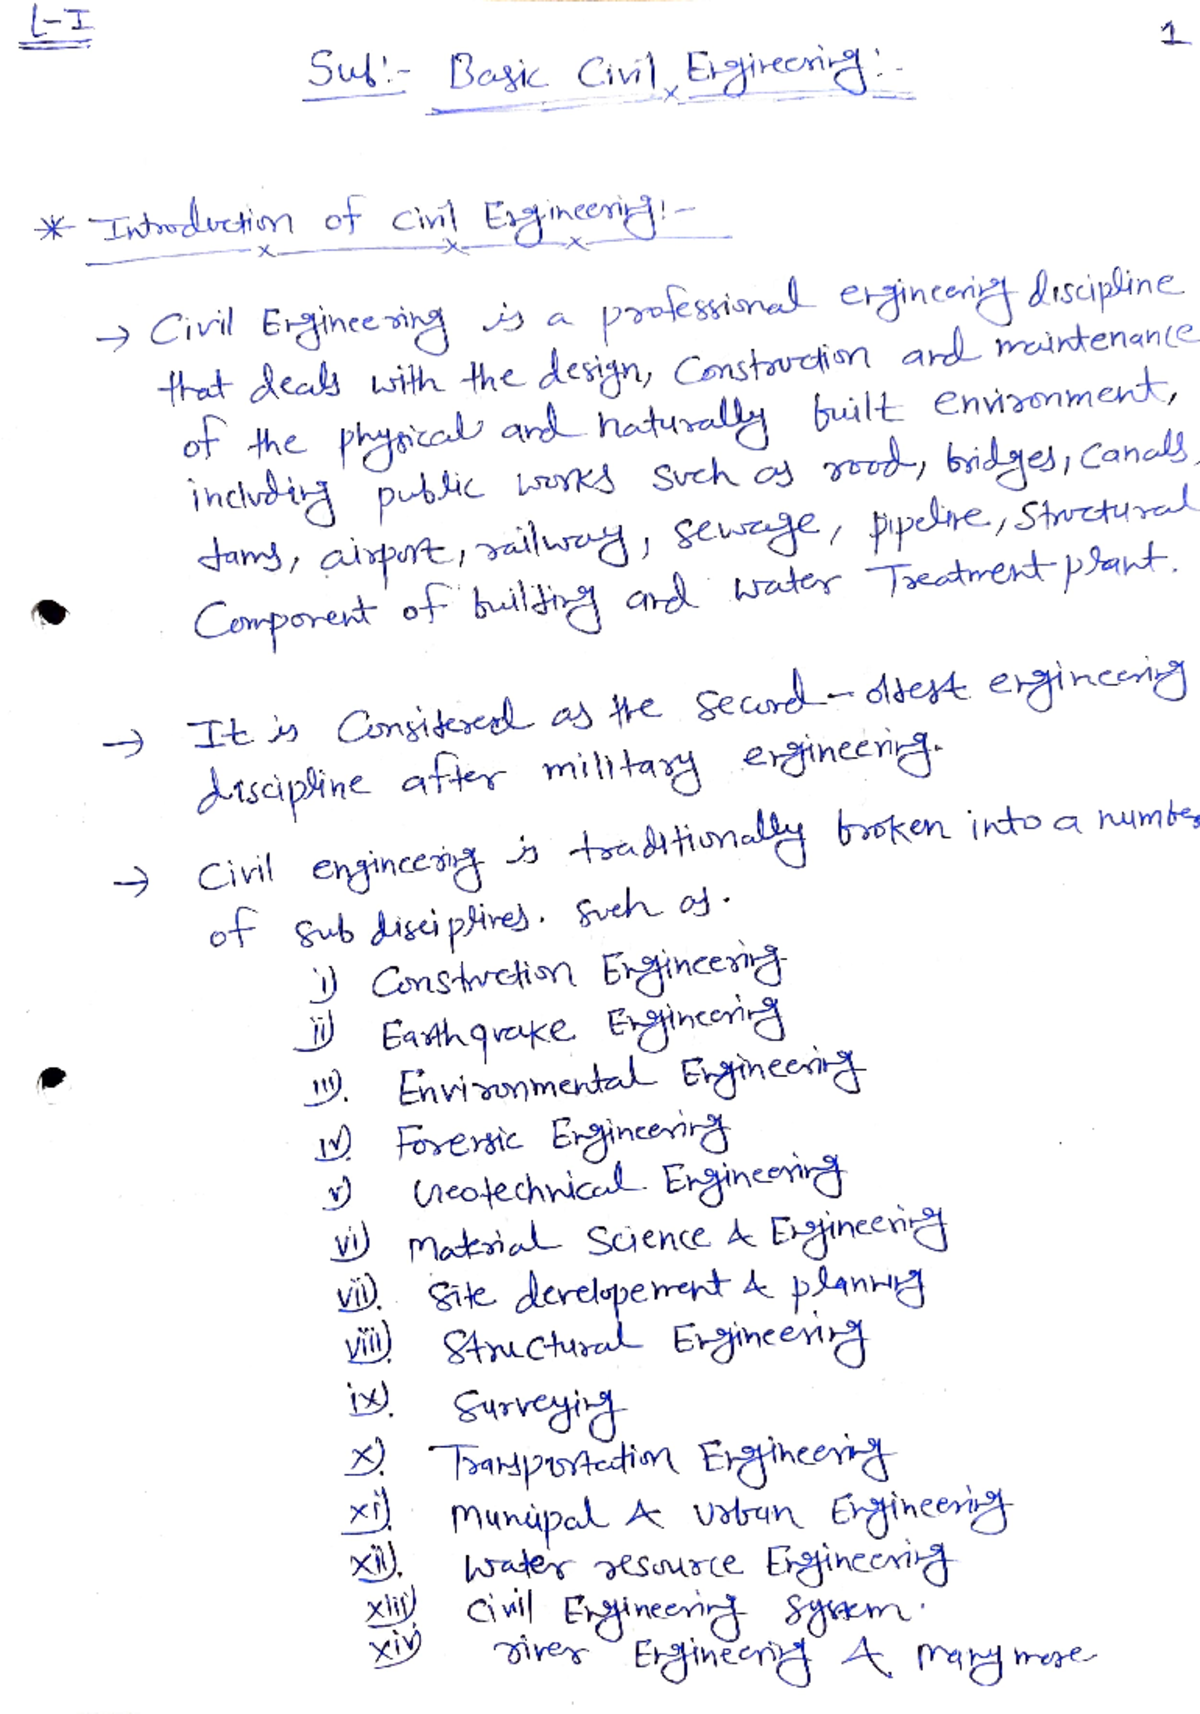 L-I
1
Sub:- Basic Civil Engineering:-
* Introduction of Civil Engineering:-
→ Civil Engineering is a professional engineering discipline
that deals with the design, Construction and maintenance
of the physical and naturally built environment,
including public works such as road, bridges, canals,
dams, airport, railway, sewage, pipeline, structural
Component of building and water Treatment plant.
→ It is Considered as the second-oldest engineering
discipline after military engineering.
→ Civil engineering is traditionally broken into a number
of sub disciplines. such as.
i) Construction Engineering
ii) Earthquake Engineering
iii). Environmental Engineering
iv) Forensic Engineering
v) Geotechnical Engineering
vi) Material Science & Engineering
vii). Site developement & planning
viii) Structural Engineering
ix). Surveying
x). Transportation Engineering
xi). Municipal & Urban Engineering
xii). Water resource Engineering
xiii) Civil Engineering System.
xiv) river Engineering & many more